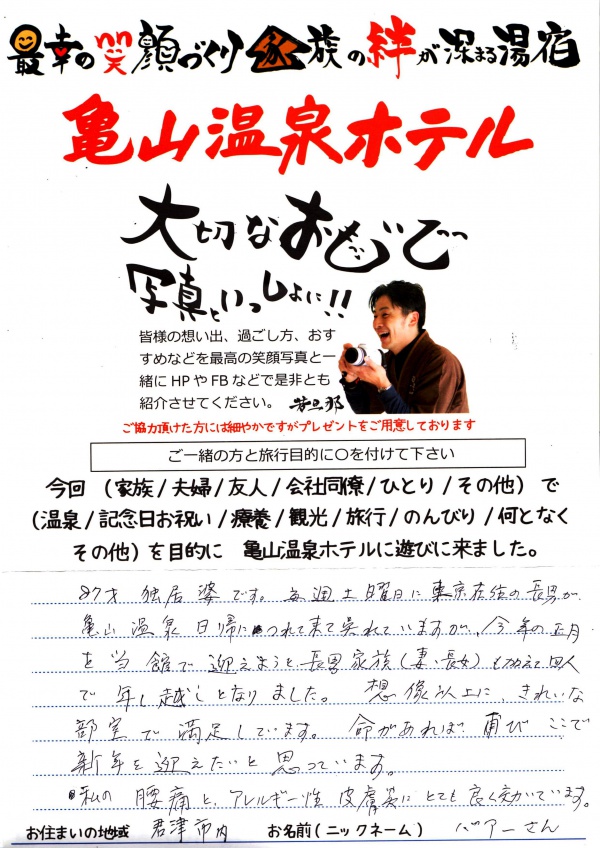 最幸の笑顔づくり家族の絆が深まる湯宿
亀山温泉ホテル
大切なおもいで
写真といっしょに!!
皆様の想い出、過ごし方、おす
すめなどを最高の笑顔写真と一
緒にHPやFBなどで是非とも
紹介させてください。 若旦那
ご協力頂けた方には細やかですがプレゼントをご用意しております
ご一緒の方と旅行目的に〇を付けて下さい
今回 (家族/夫婦/友人/会社同僚/ひとり/その他) で
(温泉/記念日お祝い/療養/観光/旅行/のんびり/何となく
その他) を目的に 亀山温泉ホテルに遊びに来ました。
87才 独居婆です。毎週土曜日に東京在住の長男が、
亀山温泉日帰につれて来て呉れていますが、今年の正月
を当館で迎えようと長男家族(妻、長女)も加えて四人
で年し越しとなりました。 想像以上に、きれいな
部屋で満足しています。 命があれば 再び ここで
新年を迎えたいと思っています。
・私の腰痛と、アレルギー性皮膚炎にとても良く効いています。
お住まいの地域 君津市内 お名前(ニックネーム) バアーさん